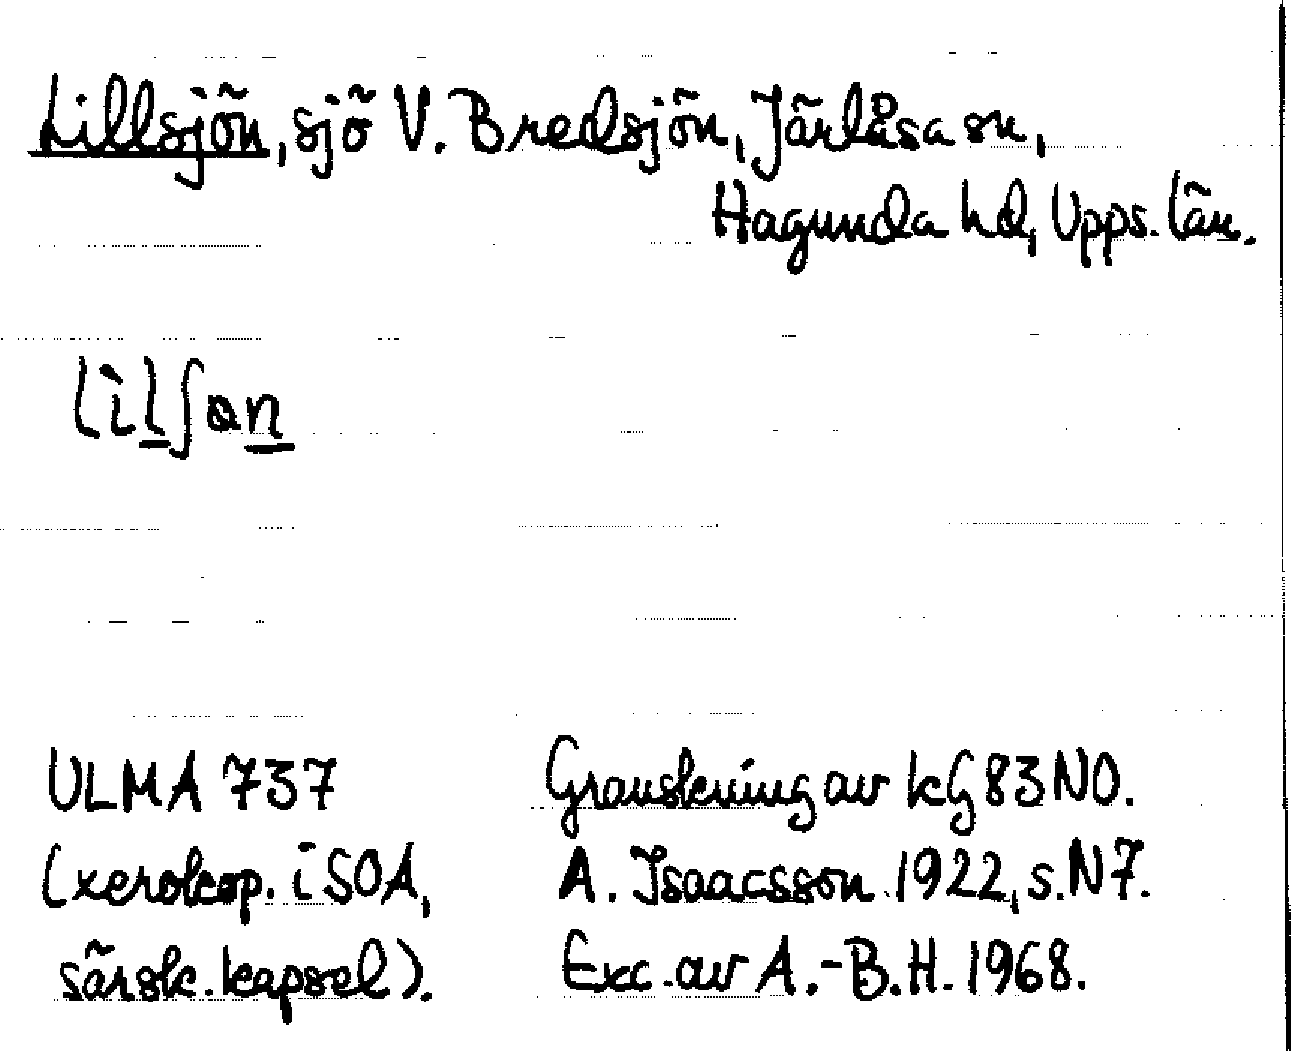 Lillsjön, sjö V. Bredsjön, Järlåsa sn,
Hagunda hd, Upps. län.
lilʃɷn
ULMA 737
(xerokop. i SOA,
särsk. kapsel).
Granskning av kG 83 NO.
A. Isaacsson 1922, s. N7.
Exc. av A.-B.H. 1968.